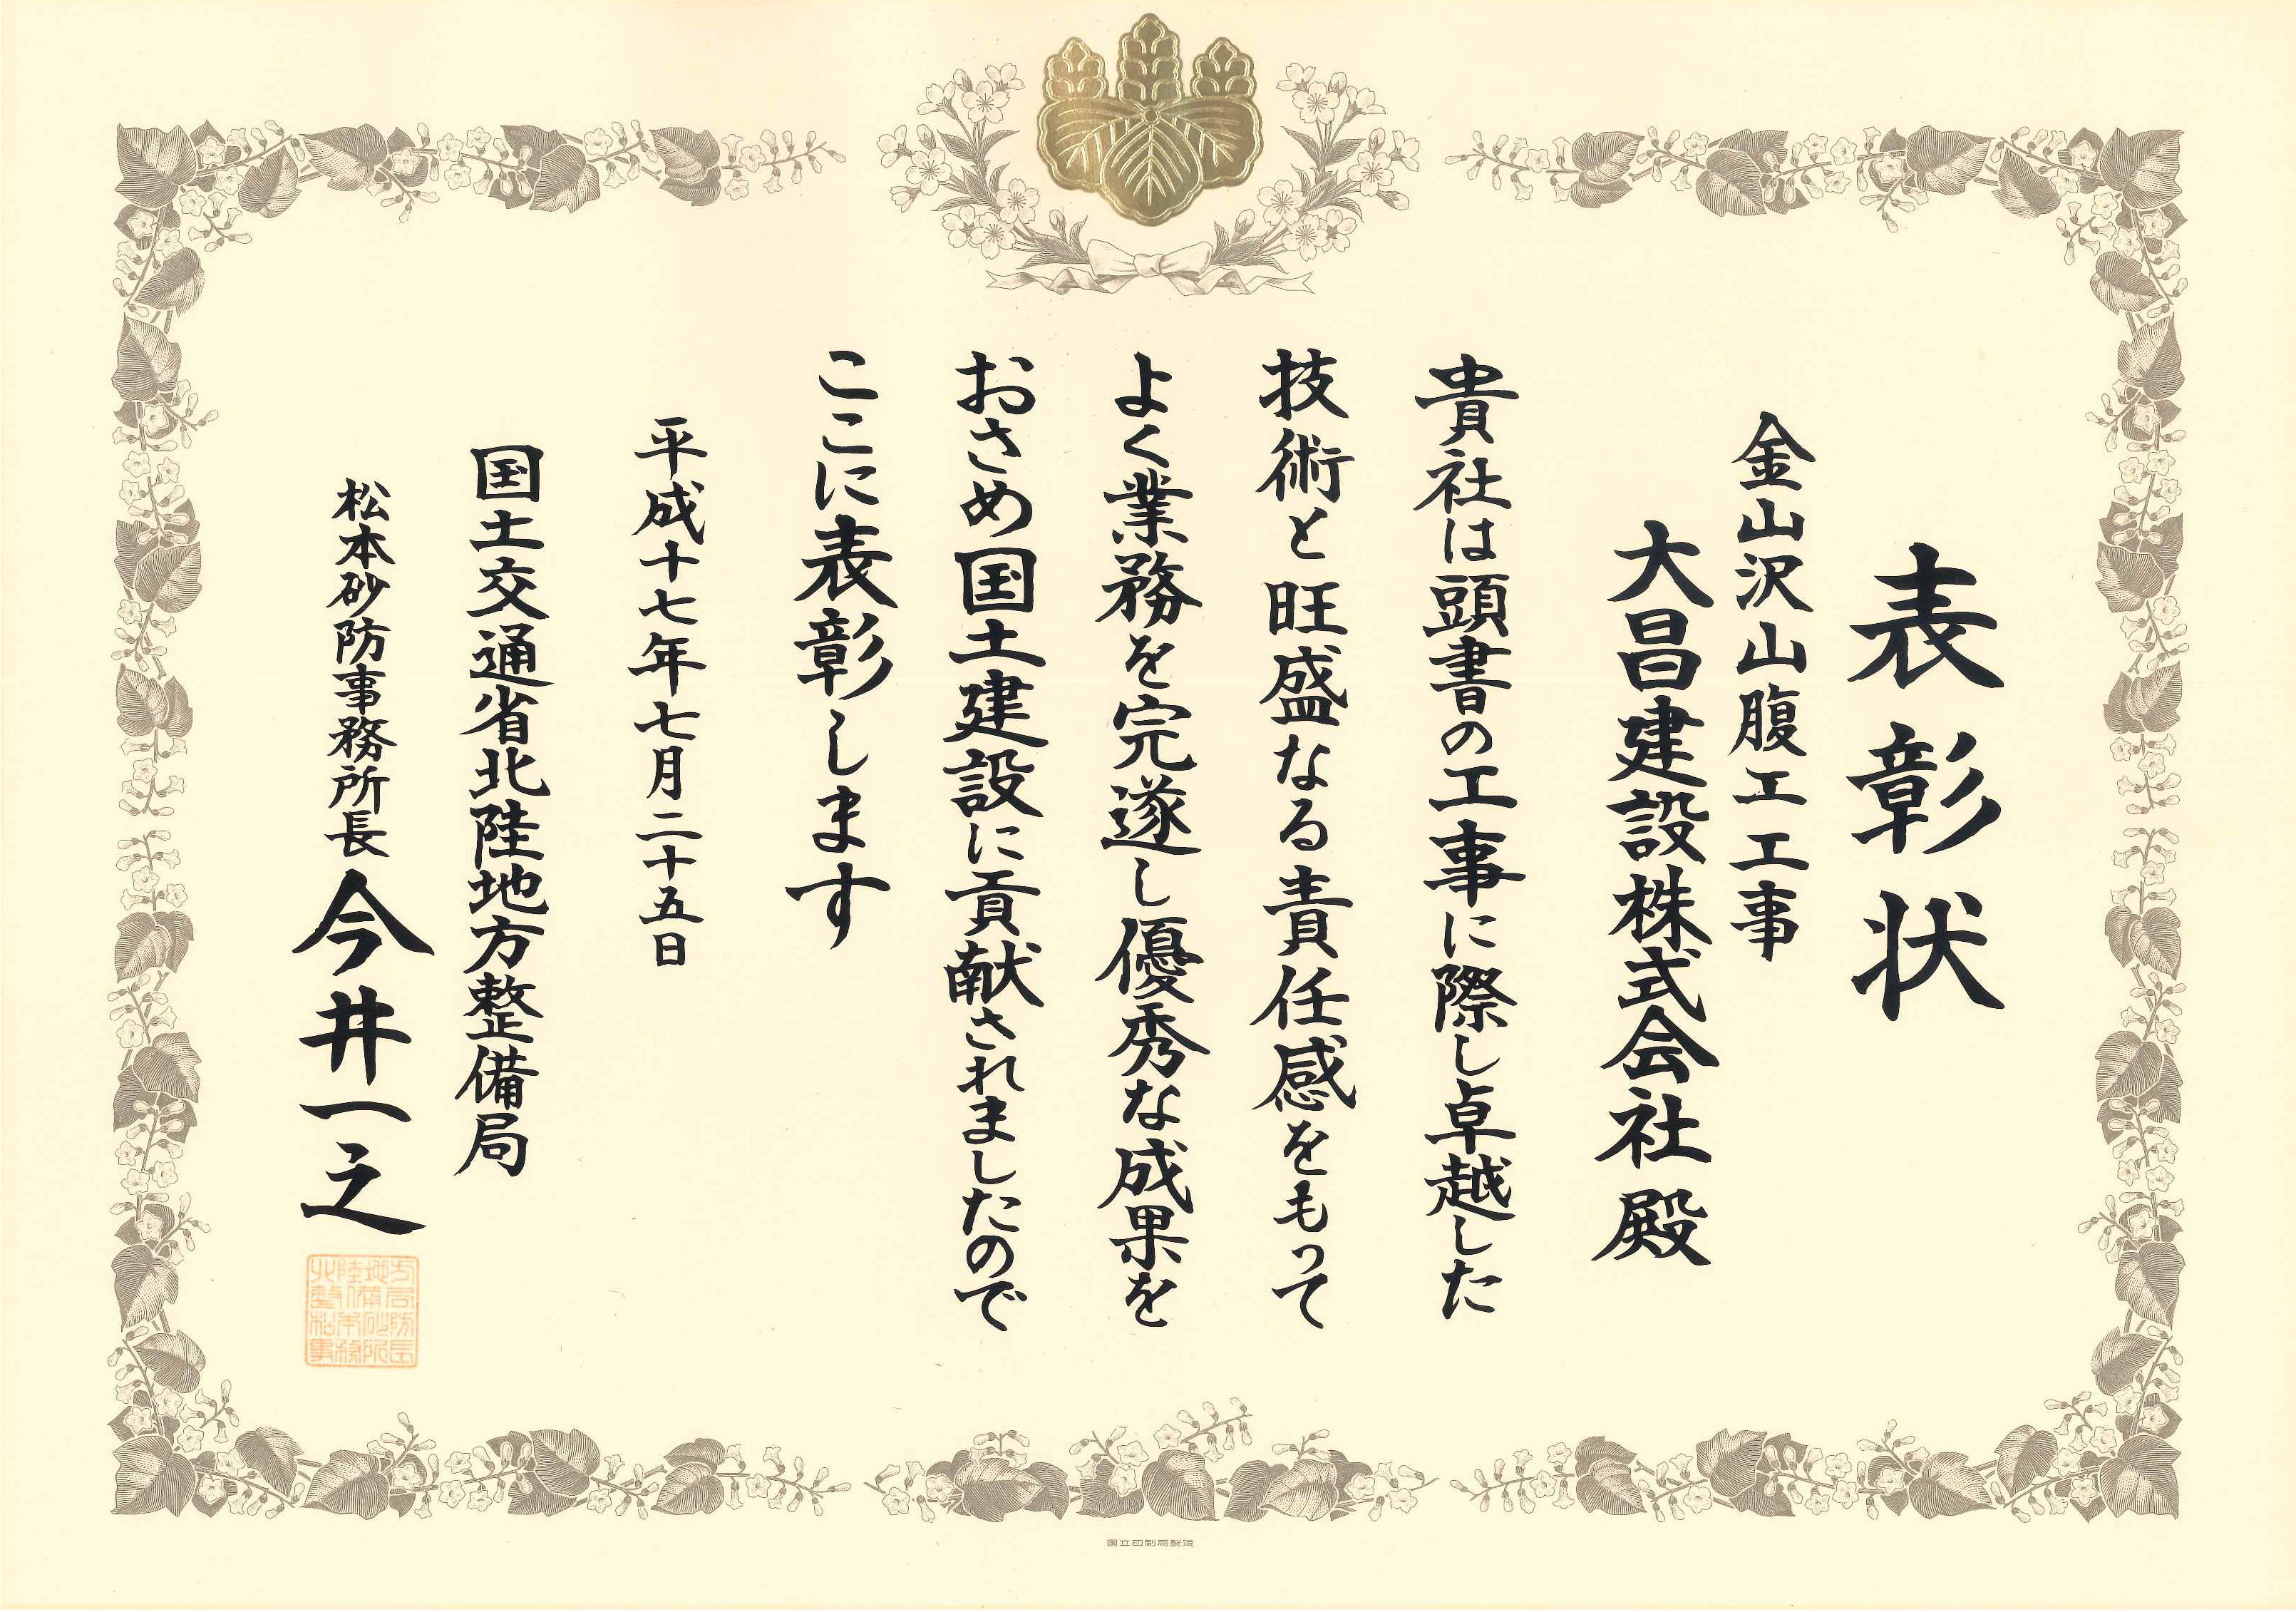 表彰状
金山沢山腹工工事
大昌建設株式会社 殿
貴社は頭書の工事に際し卓越した
技術と旺盛なる責任感をもって
よく業務を完遂し優秀な成果を
おさめ国土建設に貢献されましたので
ここに表彰します
平成十七年七月二十五日
国土交通省北陸地方整備局
松本砂防事務所長 今井一之
北陸地方
整備局
松本砂防
事務所長
国立印刷局製造